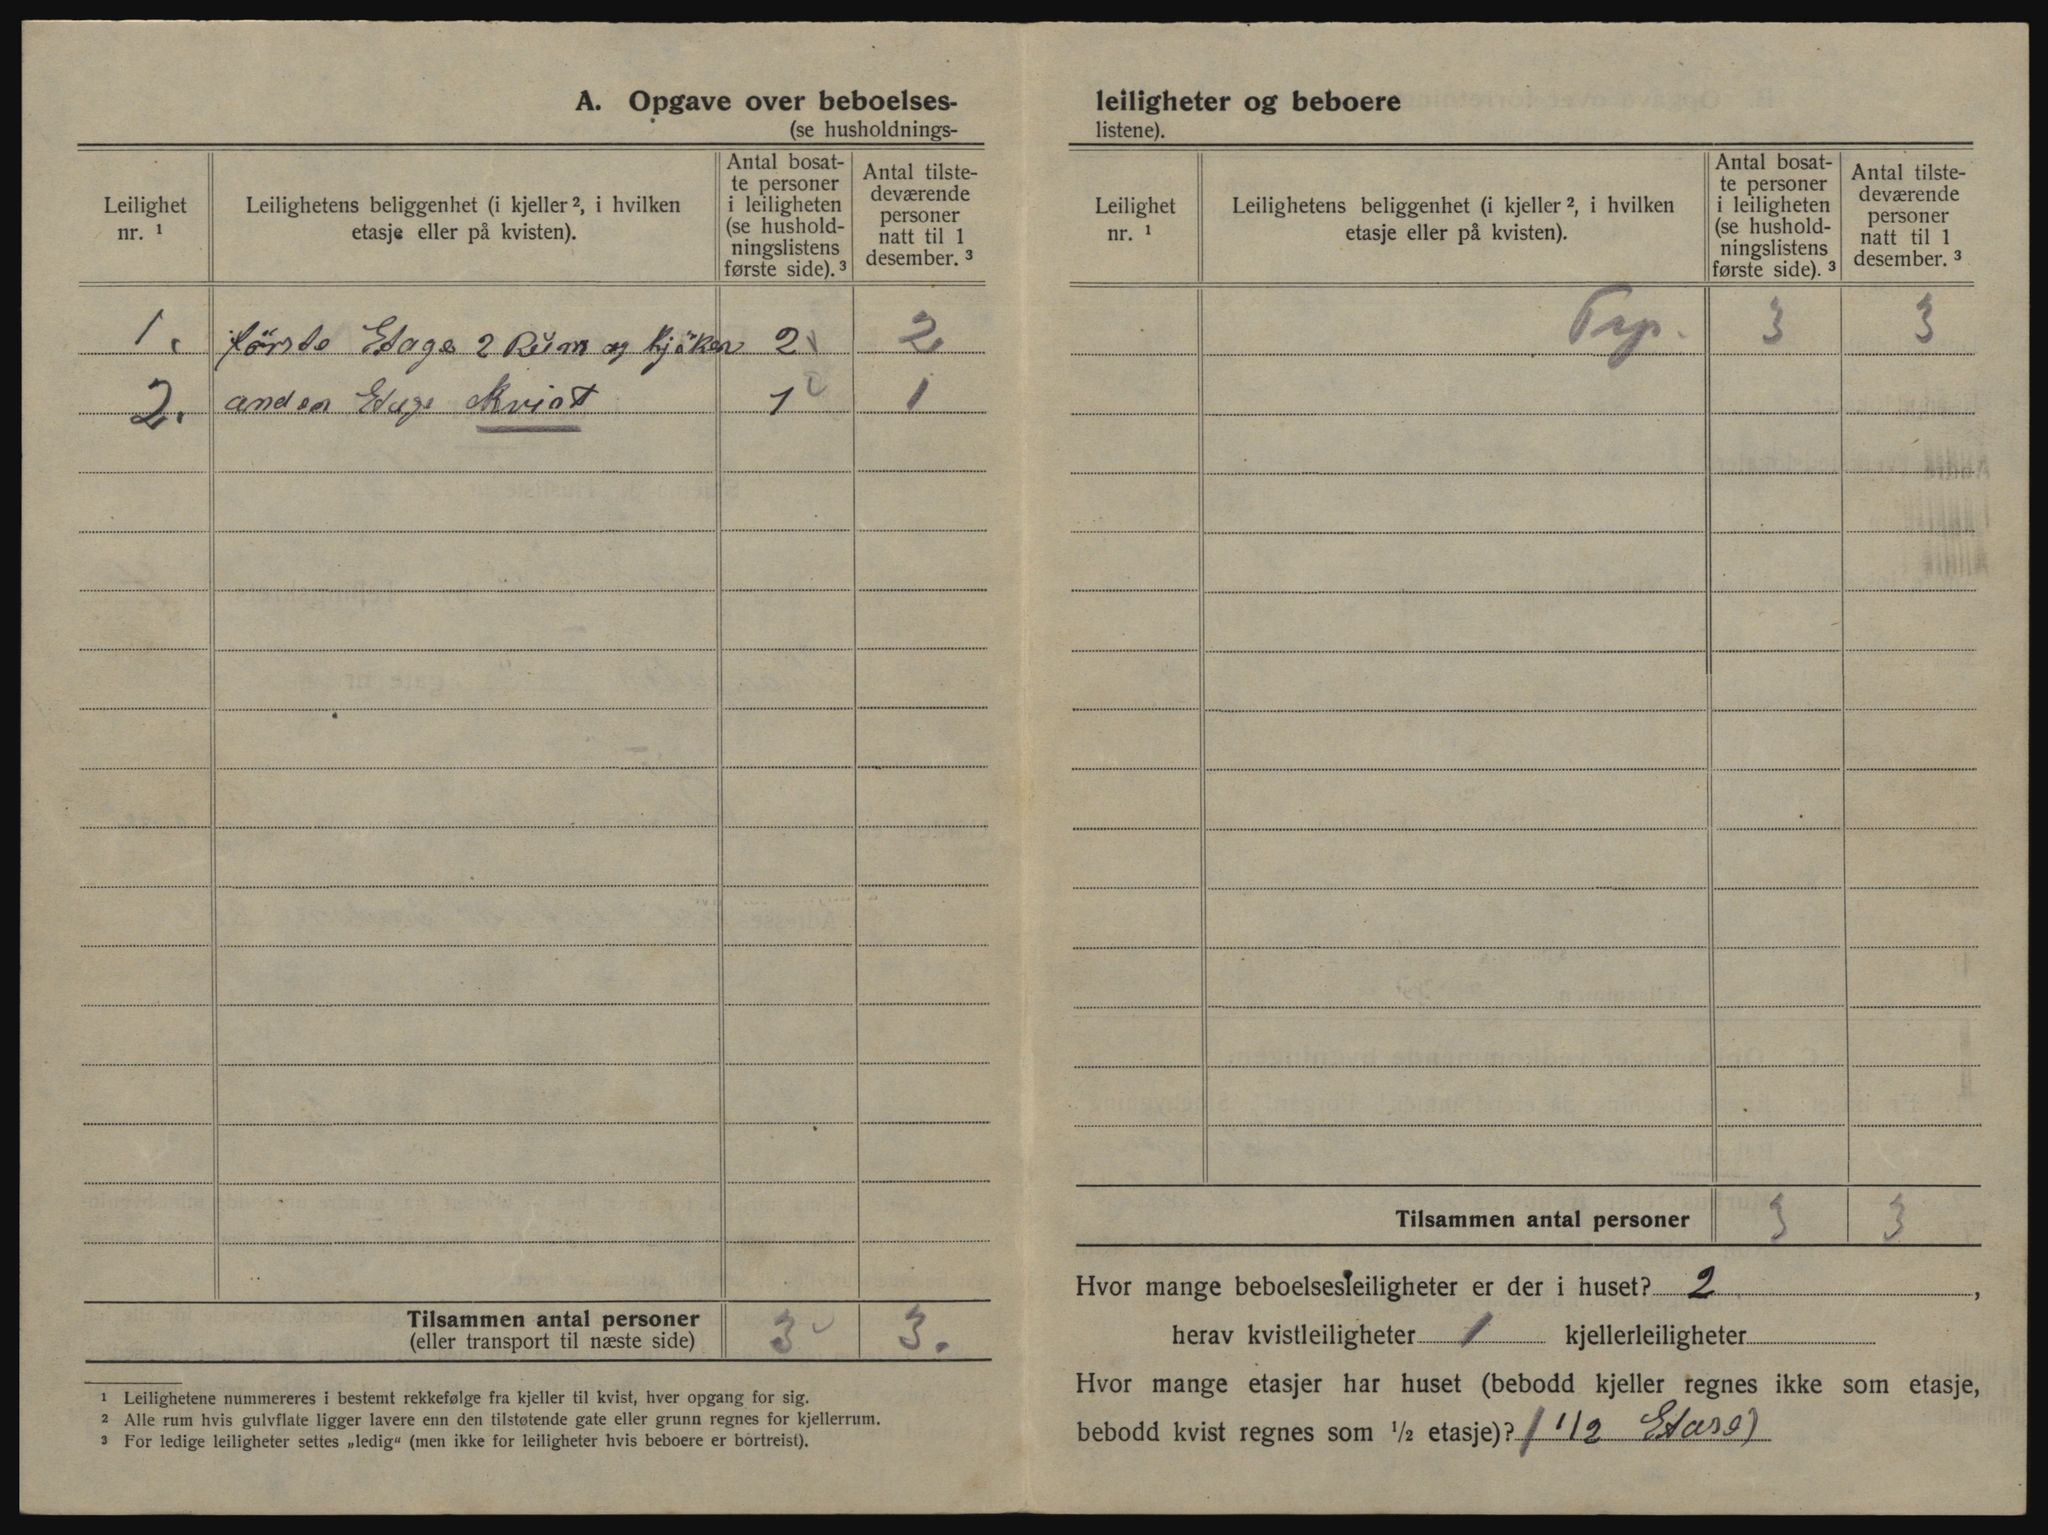 A. Opgave over beboelses-
(se husholdnings-
Leilighet
nr. ¹
Leilighetens beliggenhet (i kjeller ², i hvilken
etasje eller på kvisten).
Antal bosat-
te personer
i leiligheten
(se hushold-
ningslistens
første side). ³
Antal tilste-
deværende
personer
natt til 1
desember. ³
1. förste Etage 2 Rüm og kjöken 2 2
2. anden Etage Kvist 1 1
Tilsammen antal personer 3 3.
(eller transport til næste side)
¹ Leilighetene nummereres i bestemt rekkefølge fra kjeller til kvist, hver opgang for sig.
² Alle rum hvis gulvflate ligger lavere enn den tilstøtende gate eller grunn regnes for kjellerrum.
³ For ledige leiligheter settes „ledig“ (men ikke for leiligheter hvis beboere er bortreist).
leiligheter og beboere
listene).
Leilighet
nr. ¹
Leilighetens beliggenhet (i kjeller ², i hvilken
etasje eller på kvisten).
Antal bosat-
te personer
i leiligheten
(se hushold-
ningslistens
første side). ³
Antal tilste-
deværende
personer
natt til 1
desember. ³
3 3
Tilsammen antal personer 3 3
Hvor mange beboelsesleiligheter er der i huset? 2,
herav kvistleiligheter 1 kjellerleiligheter
Hvor mange etasjer har huset (bebodd kjeller regnes ikke som etasje,
bebodd kvist regnes som ½ etasje)? 1 1/2